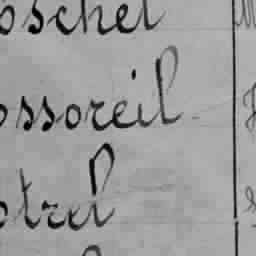 oschet
ossoreil
otrel